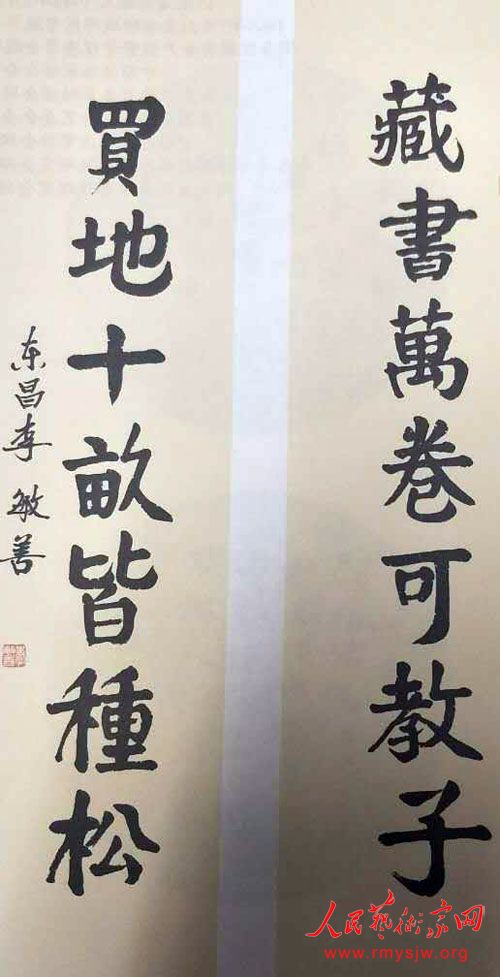 藏書萬卷可教子
買地十畝皆種松
东昌李敏善
人民藝術家网
www.rmysjw.org